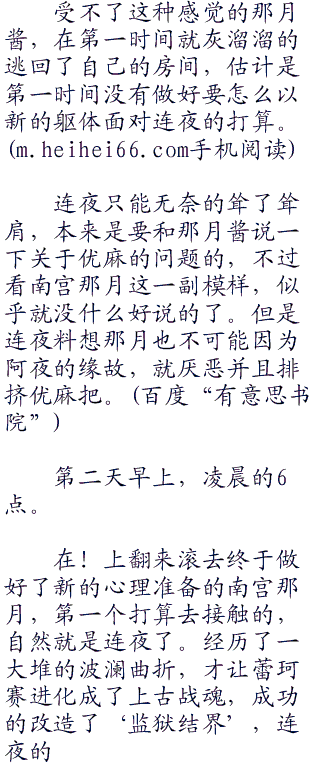 受不了这种感觉的那月
酱，在第一时间就灰溜溜的
逃回了自己的房间，估计是
第一时间没有做好要怎么以
新的躯体面对连夜的打算。
(m.heihei66.com手机阅读)
连夜只能无奈的耸了耸
肩，本来是要和那月酱说一
下关于优麻的问题的，不过
看南宫那月这一副模样，似
乎就没什么好说的了。但是
连夜料想那月也不可能因为
阿夜的缘故，就厌恶并且排
挤优麻把。(百度“有意思书
院”)
第二天早上，凌晨的6
点。
在！上翻来滚去终于做
好了新的心理准备的南宫那
月，第一个打算去接触的，
自然就是连夜了。经历了一
大堆的波澜曲折，才让蕾珂
赛进化成了上古战魂，成功
的改造了‘监狱结界’，连
夜的